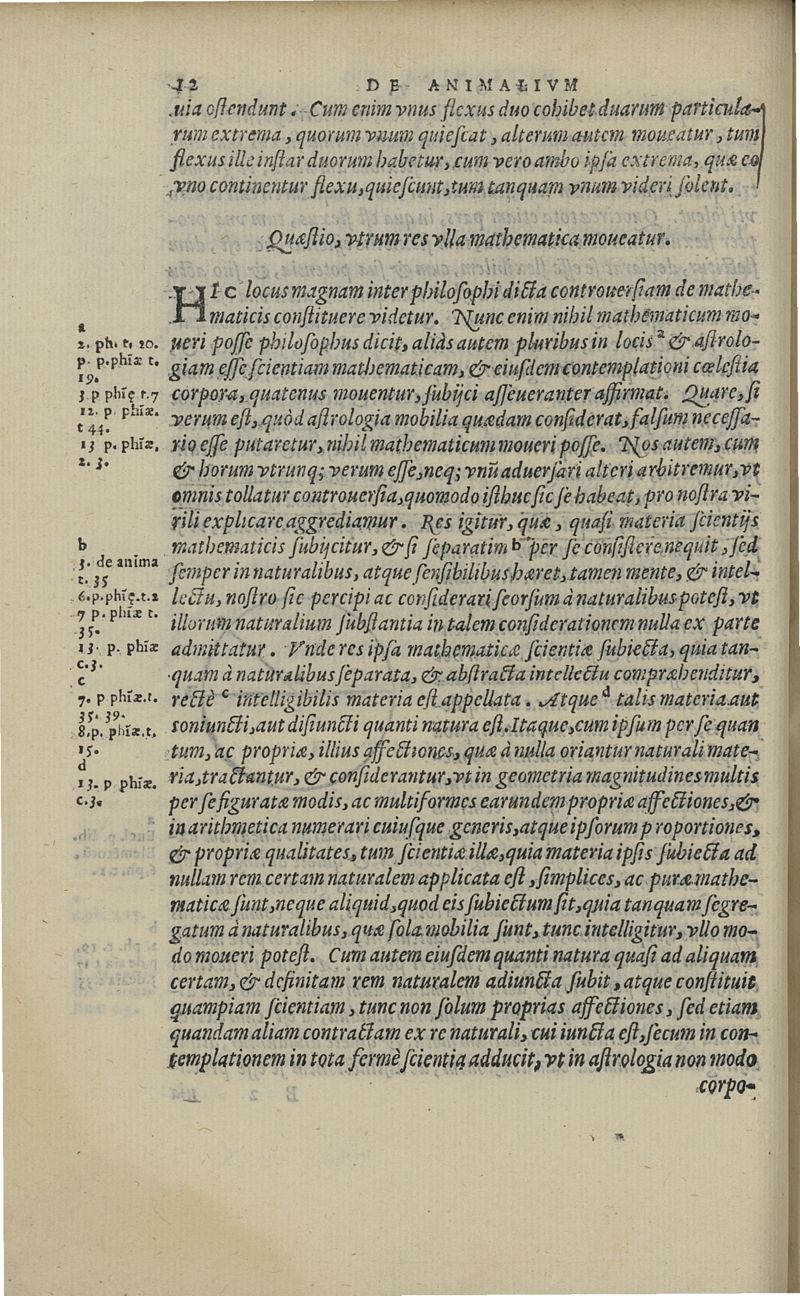 12 DE ANIMALIVM
uia ostendunt. Cum enim vnus flexus duo cohibet duarum particula-
rum extrema, quorum vnum quiescat, alterum autem moueatur, tum
flexus ille instar duorum habetur, cum vero ambo ipsa extrema, quæ eo
vno continentur flexu, quiescunt, tum tanquam vnum videri solent.
Quæstio, vtrum res vlla mathematica moueatur.
HIC locus magnam inter philosophi dicta controuersiam de mathe-
maticis constituere videtur. Nunc enim nihil mathematicum mo-
ueri posse philosophus dicit, aliàs autem pluribus in locis a & astrolo-
giam esse scientiam mathematicam, & eiusdem contemplationi cœlestia
corpora, quatenus mouentur, subijci asseueranter affirmat. Quare, si
verum est, quòd astrologia mobilia quædam considerat, falsum necessa-
rio esse putaretur, nihil mathematicum moueri posse. Nos autem, cum
& horum vtrunq; verum esse, neq; vnũ aduersari alteri arbitremur, vt
omnis tollatur controuersia, quomodo isthuc sic se habeat, pro nostra vi-
rili explicare aggrediamur. Res igitur, quæ, quasi materia scientijs
mathematicis subijcitur, & si separatim b per se consistere nequit, sed
semper in naturalibus, atque sensibilibus hæret, tamen mente, & intel-
lectu, nostro sic percipi ac considerari seorsum à naturalibus potest, vt
illorum naturalium substantia in talem considerationem nulla ex parte
admittatur. Vnde res ipsa mathematicæ scientiæ subiecta, quia tan-
quam à naturalibus separata, & abstracta intellectu compræhenditur,
rectè c intelligibilis materia est appellata. Atque d talis materia aut
soniuncti, aut disiuncti quanti natura est. Itaque, cum ipsum per se quan
tum, ac propriæ, illius affectiones, quæ à nulla oriantur naturali mate-
ria, tractantur, & considerantur, vt in geometria magnitudines multis
per se figuratæ modis, ac multiformes earundem propriæ affectiones, &
in arithmetica numerari cuiusque generis, atque ipsorum proportiones,
& propriæ qualitates, tum scientiæ illæ, quia materia ipsis subiecta ad
nullam rem certam naturalem applicata est, simplices, ac puræ mathe-
maticæ sunt, neque aliquid, quod eis subiectum sit, quia tanquam segre-
gatum à naturalibus, quæ sola mobilia sunt, tunc intelligitur, vllo mo-
do moueri potest. Cum autem eiusdem quanti natura quasi ad aliquam
certam, & definitam rem naturalem adiuncta subit, atque constituit
quampiam scientiam, tunc non solum proprias affectiones, sed etiam
quandam aliam contractam ex re naturali, cui iuncta est, secum in con-
templationem in tota fermè scientia adducit, vt in astrologia non modo
corpo-
a
2. ph. t. 20.
p. p. phiæ t.
19.
3 p phię t. 7
12. p. phiæ.
t 44.
13 p. phiæ,
2. 3.
b
3. de anima
t. 35
6. p. phię. t. 2
7 p. phiæ t.
35.
13. p. phiæ
c. 3.
c
7. p phiæ. t.
35. 39.
8. p. phiæ. t.
15.
d
13. p phiæ.
c. 3.